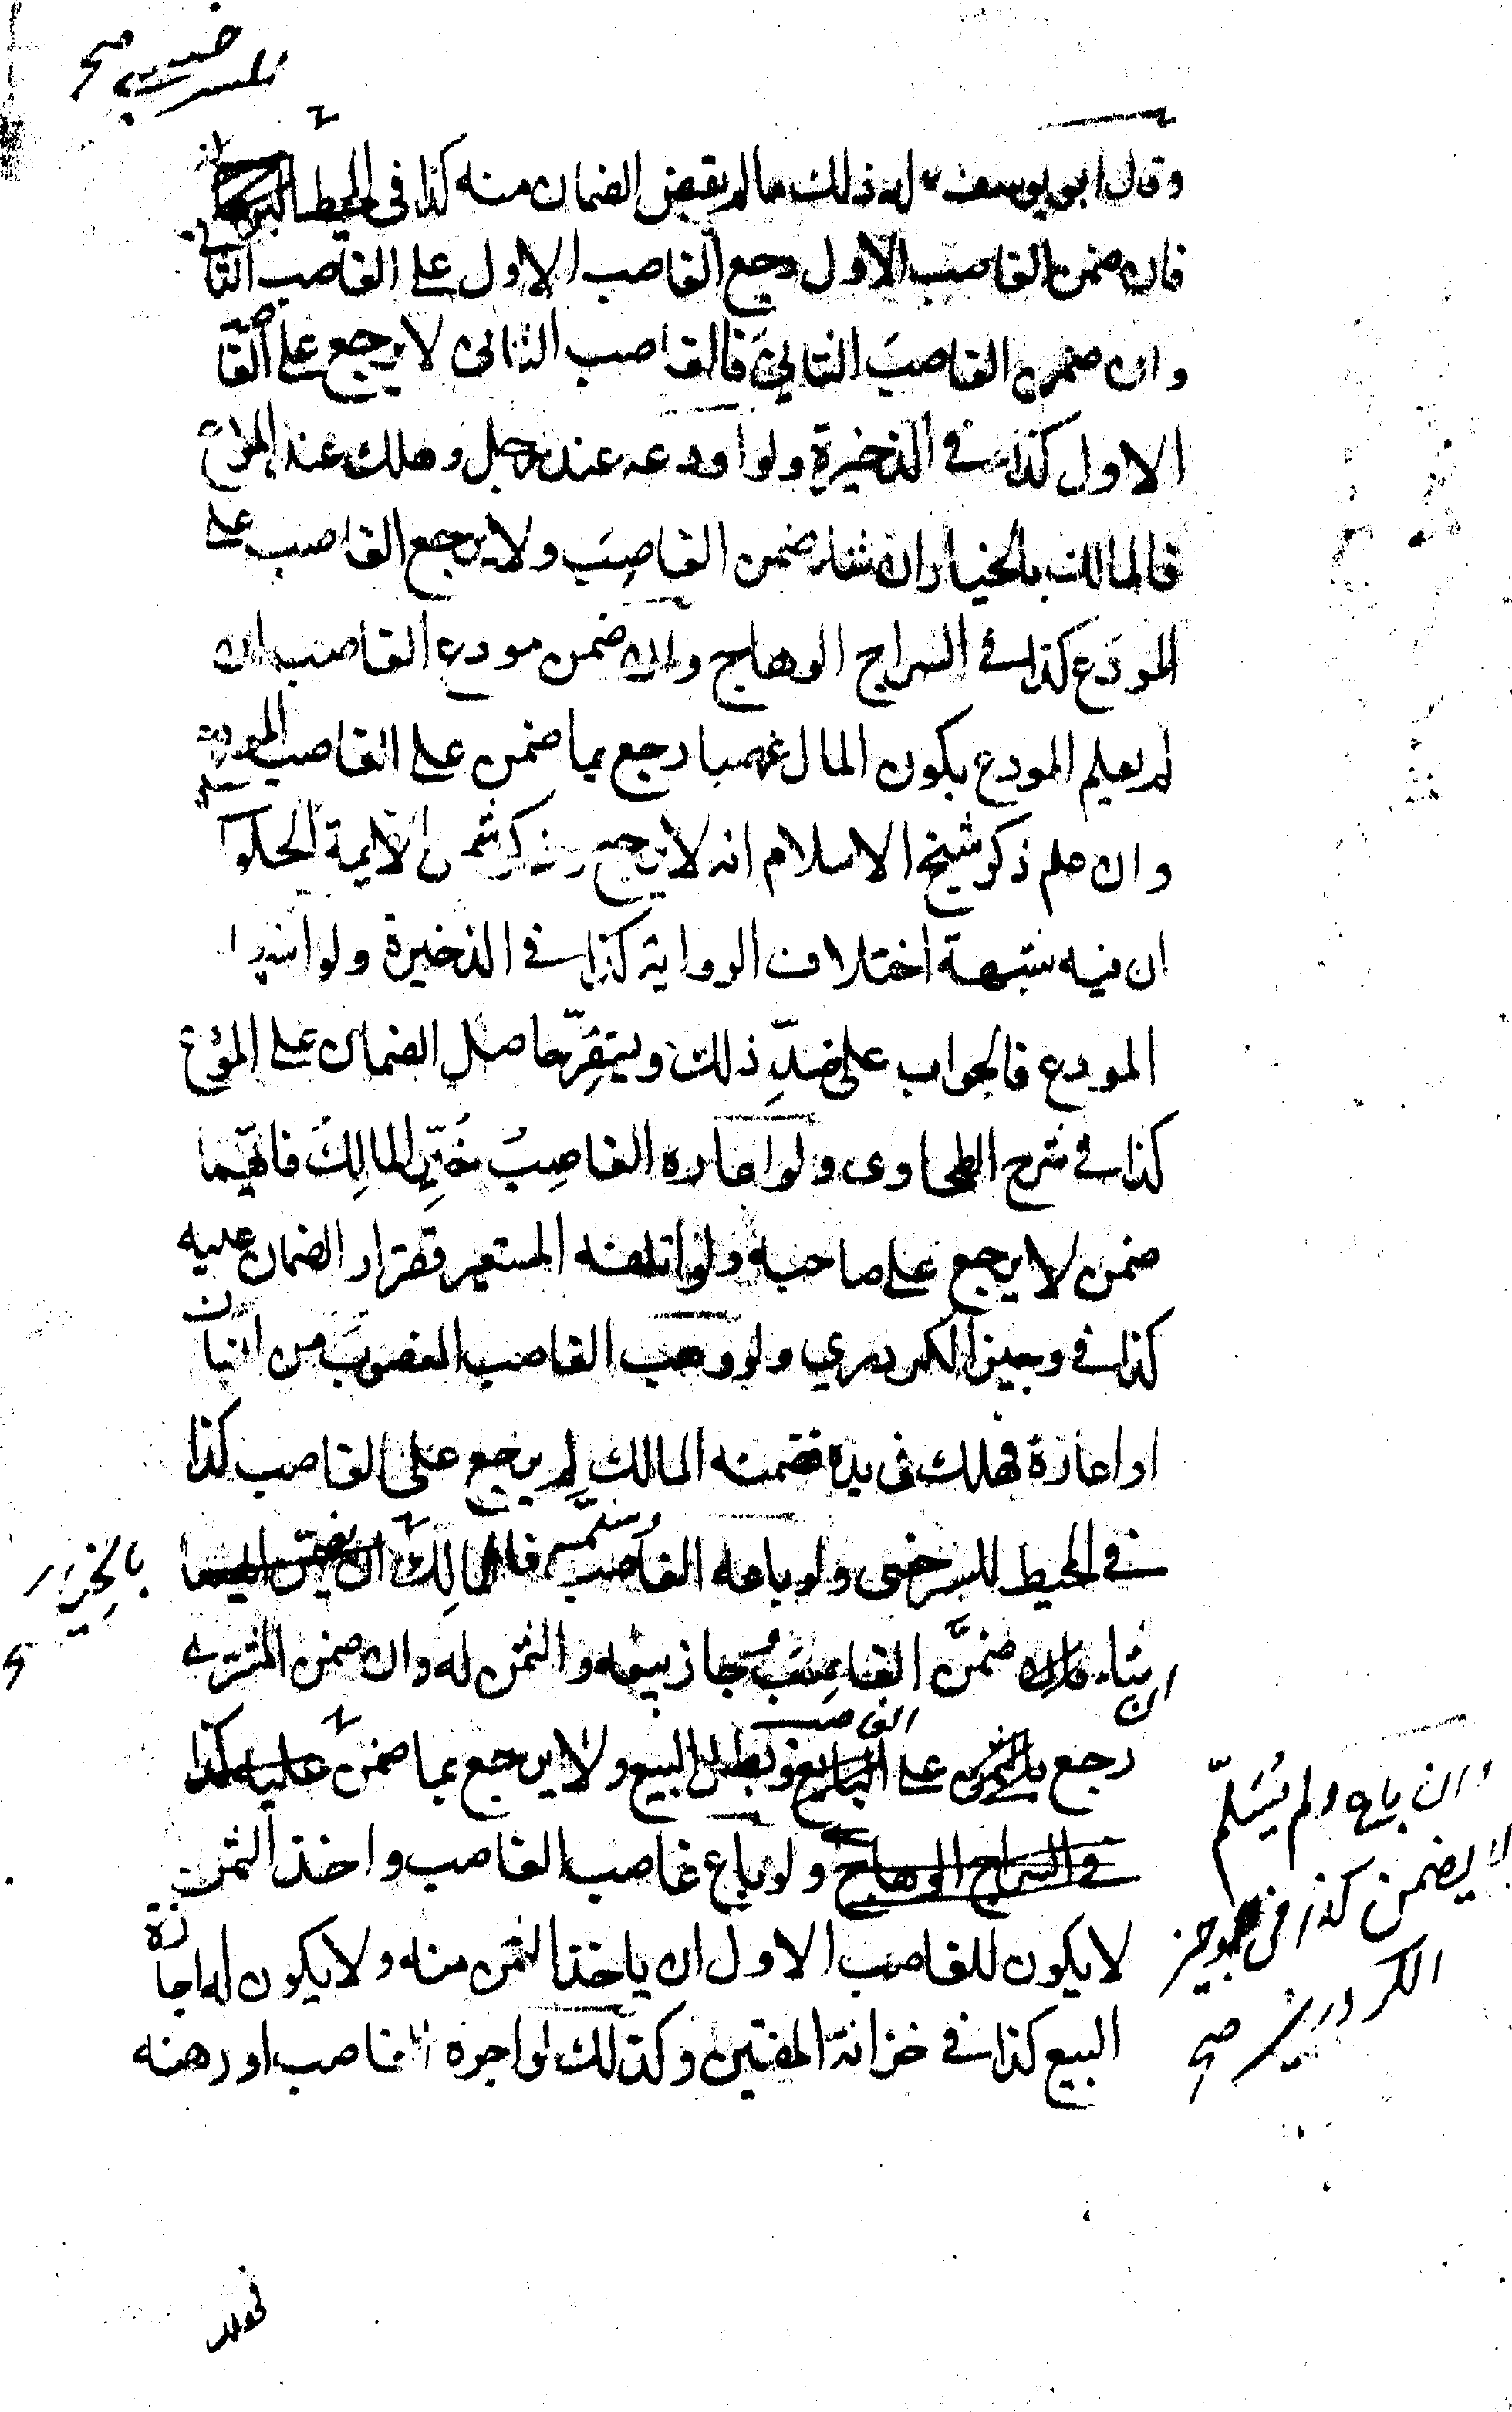 للسرخسي صح
وقال ابو يوسف له ذلك ما لم يقبض الضمان منه كذا في المحيط
فان ضمن الغاصب الاول رجع الغاصب الاول على الغاصب الثا
وان ضمن الغاصبَ الثاني فالغاصب الثاني لا يرجع على الغا
الاول كذا في الذخيرة ولو اودعه عند رجل وهلك عند المودع
فالمالك بالخيار ان شاء ضمن الغاصِبَ ولا يرجع الغاصب على
المودَع كذا في السراج الوهاج وان ضمن مودع الغاصب ان
لم يعلم المودع بكون المال غصبا رجع بما ضمن على الغاصب المودع
وان علم ذكر شيخ الاسلام انه لا يرجع وذكر شمس الايمة الحلوا
ان فيه شبهة اختلاف الرواية كذا في الذخيرة ولو
المودع فالجواب على ضدّ ذلك ويستقرّ حاصل الضمان على المودع
كذا في شرح الطحاوى ولو اعاره الغاصِبُ خُيّر المالِكُ فايّهما
ضمن لا يرجع على صاحبه ولو اتلفه المستعير فقرار الضمان عليه
كذا في وجيز الكردري ولو وهب الغاصب المغصوبَ من انسان
او اعاره فهلك في يده فضمنه المالك لم يرجع على الغاصب كذا
في المحيط للسرخسى ولو باعه الغاصب وسلّمه فالمالِكُ
بالخيار
ان شاء ضمنَّ الغاصِبَ جاز بيعه والثمن له وان ضمن المشترى
رجع بالثمن على الغاصب وبطل البيع ولا يرجع بما ضمن عليه كذا
في السراج الوهاج ولو باع غاصب الغاصب واخذ الثمن
لا يكون للغاصب الاول ان ياخذ الثمن منه ولا يكون له اجازة
البيع كذا في خزانة المفتين وكذلك لو اجره الغاصب او رهنه
وان باع ولم يُسَلّم
لا يضمن كذا في وجيز
الكردري صح